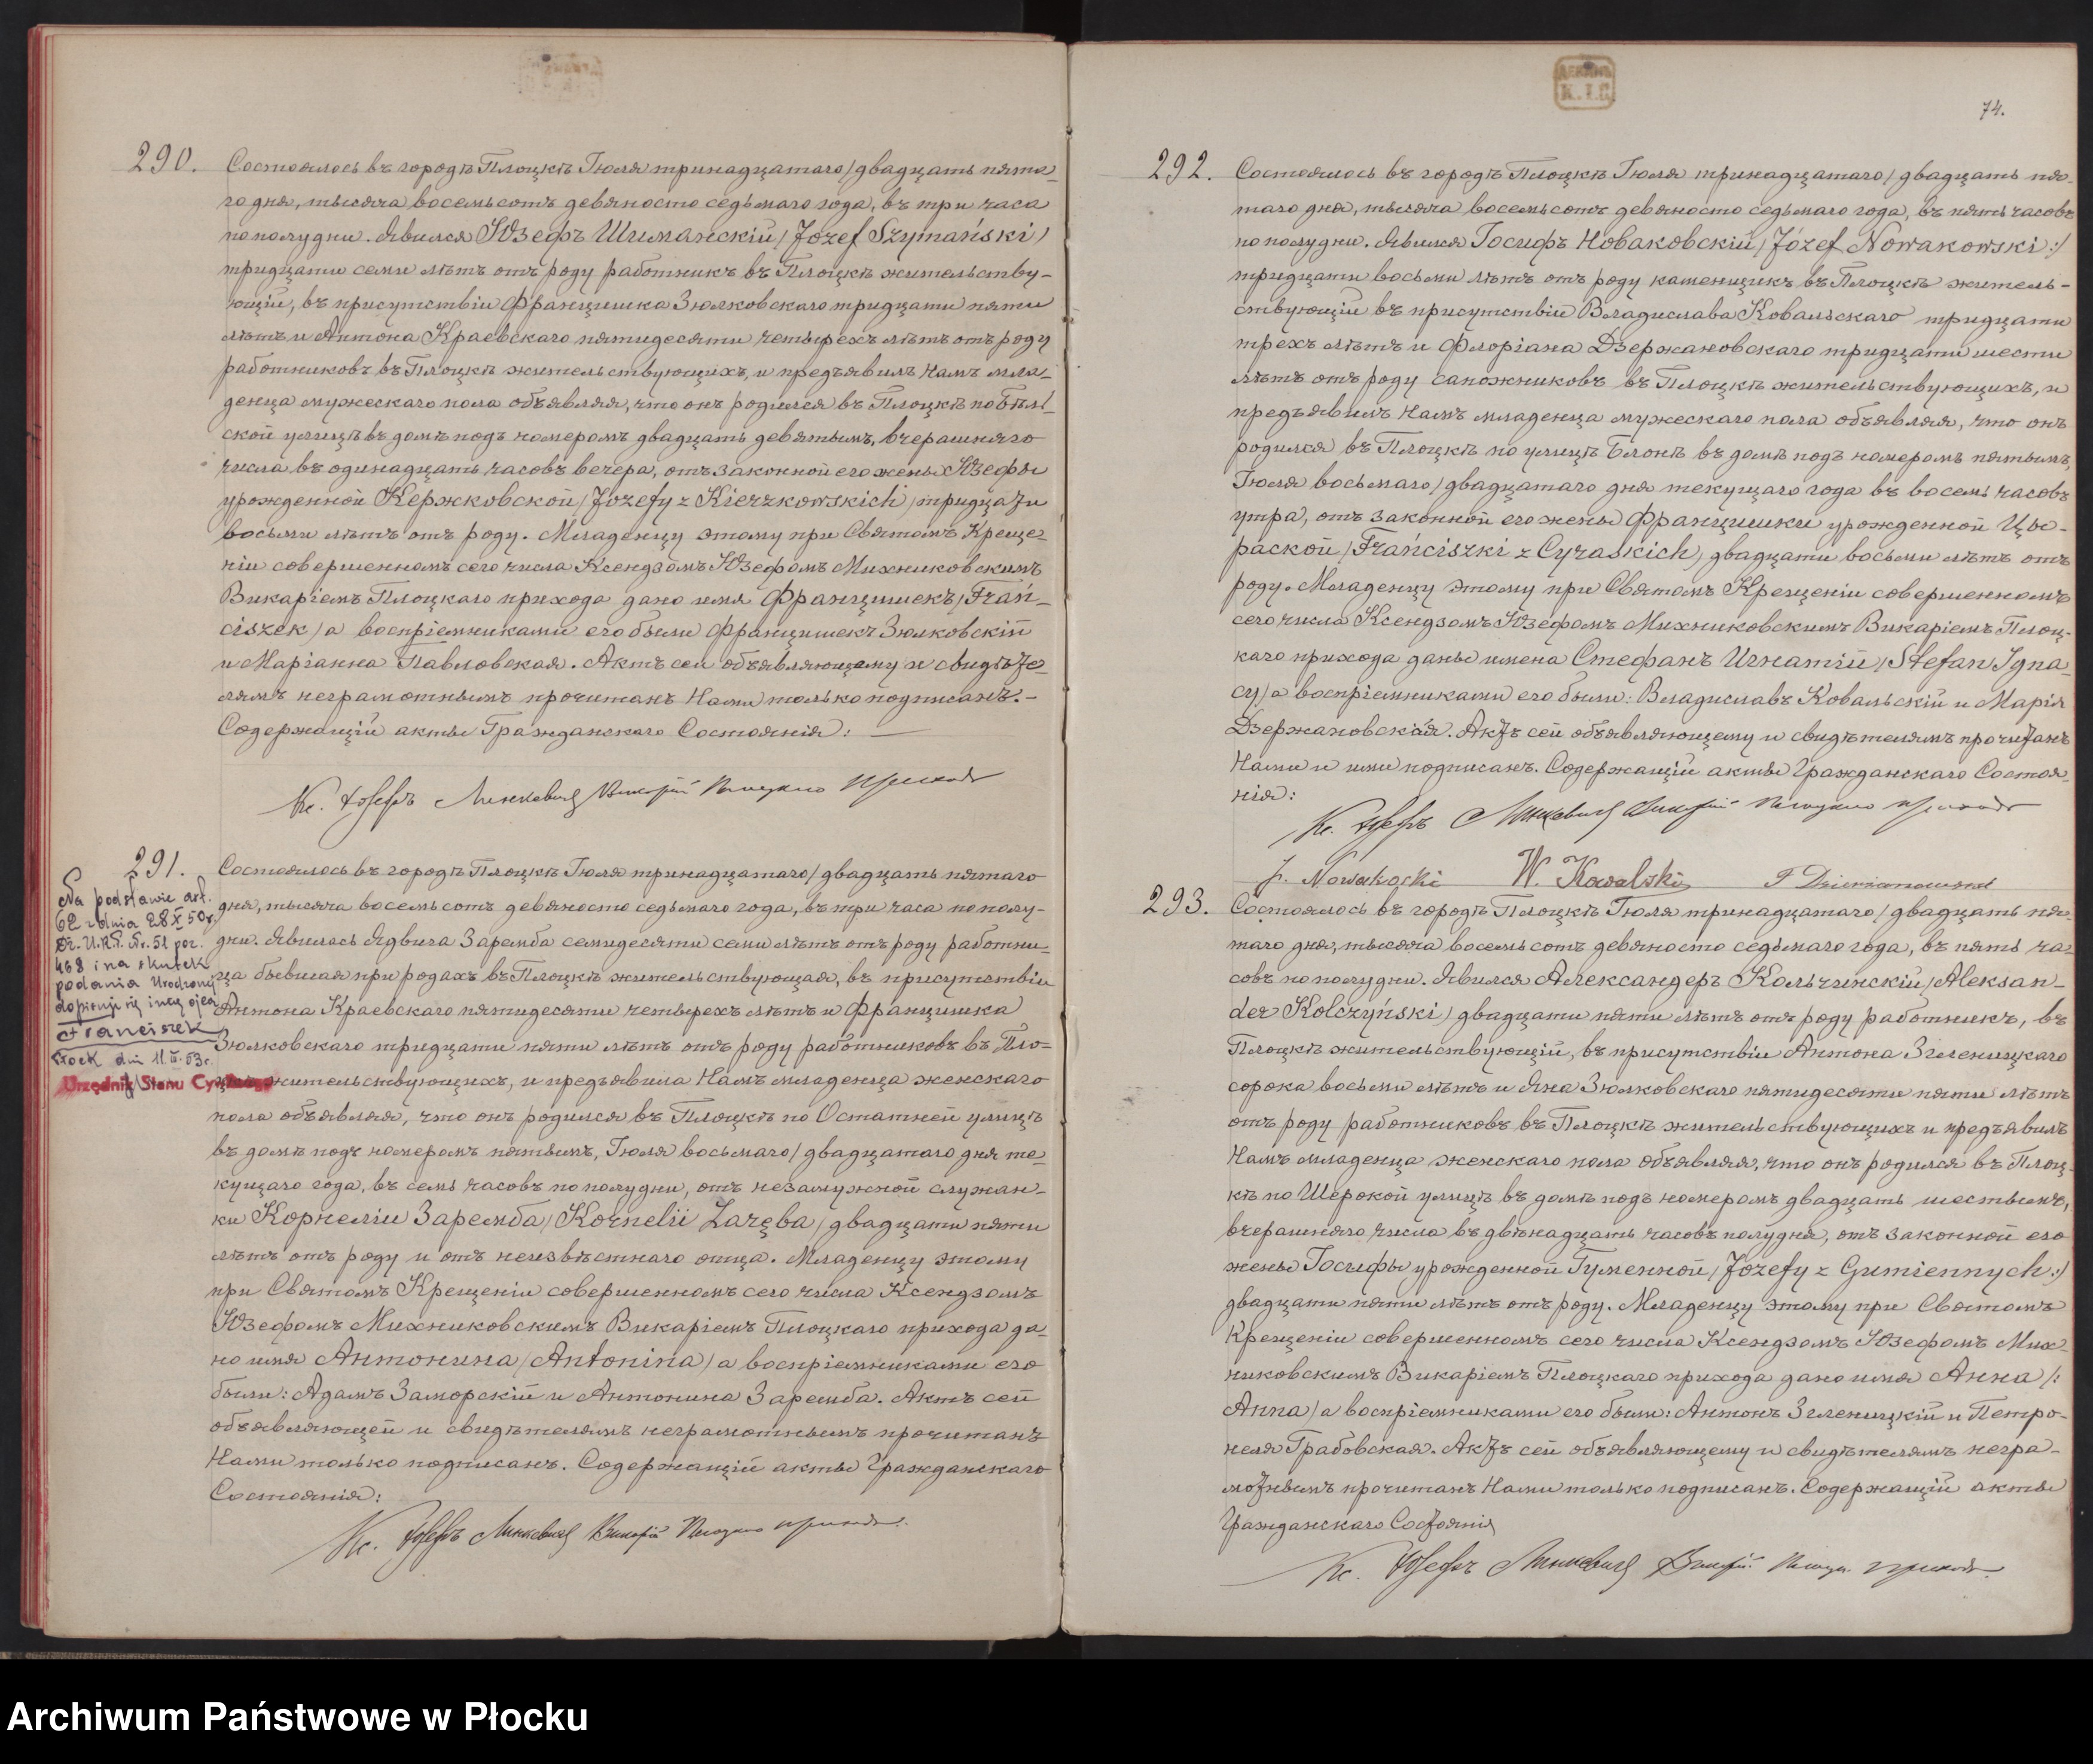 290.
Состоялось въ городѣ Плоцкѣ Іюля тринадцатаго / двадцать пята-
го дня, тысяча восемьсотъ девяносто седьмаго года, въ три часа
по полудни. Явился Юзефъ Шиманскій / Józef Szymański /
тридцати семи лѣтъ отъ роду работникъ въ Плоцкѣ жительству-
ющій, въ присутствіи Францишка Зюлковскаго тридцати пяти
лѣтъ и Антона Краевскаго пятидесяти четырехъ лѣтъ отъ роду
работниковъ въ Плоцкѣ жительствующихъ, и предъявилъ Намъ мла-
денца мужескаго пола объявляя, что онъ родился въ Плоцкѣ по Бѣль-
ской улицѣ въ домѣ подъ номеромъ двадцать девятымъ, вчерашняго
числа въ одинадцать часовъ вечера, отъ законной его жены Юзефы
урожденной Кержковской / Józefy z Kierzkowskich / тридцати
восьми лѣтъ отъ роду. Младенцу этому при Святомъ Креще-
ніи совершенномъ сего числа Ксендзомъ Юзефомъ Михниковскимъ
Викаріемъ Плоцкаго прихода дано имя Францишекъ / Frań-
ciszek / а воспріемниками его были Францишекъ Зюлковскій
и Маріанна Павловская. Актъ сей объявляющему и свидѣте-
лямъ неграмотнымъ прочитанъ Нами только подписанъ. -
Содержащій акты Гражданскаго Состоянія:
Кс. Юзефъ Викарій Плоцкаго прихода
291.
Состоялось въ городѣ Плоцкѣ Іюля тринадцатаго / двадцать пятаго
дня, тысяча восемьсотъ девяносто седьмаго года, въ три часа по полу-
дни. Явилась Ядвига Заремба семидесяти семи лѣтъ отъ роду работни-
ца бывшая при родахъ въ Плоцкѣ жительствующая, въ присутствіи
Антона Краевскаго пятидесяти четырехъ лѣтъ и Францишка
Зюлковскаго тридцати пяти лѣтъ отъ роду работниковъ въ Пло-
цкѣ жительствующихъ, и предъявила Намъ младенца женскаго
пола объявляя, что онъ родился въ Плоцкѣ по Остатней улицѣ
въ домѣ подъ номеромъ пятымъ, Іюля восьмаго / двадцатаго дня те-
кущаго года, въ семь часовъ по полудни, отъ незамужной служан-
ки Корнеліи Заремба / Kornelii Zaręba / двадцати пяти
лѣтъ отъ роду и отъ неизвѣстнаго отца. Младенцу этому
при Святомъ Крещеніи совершенномъ сего числа Ксендзомъ
Юзефомъ Михниковскимъ Викаріемъ Плоцкаго прихода да-
но имя Антонина / Antonina / а воспріемниками его
были: Адамъ Заморскій и Антонина Заремба. Актъ сей
объявляющей и свидѣтелямъ неграмотнымъ прочитанъ
Нами только подписанъ. Содержащій акты Гражданскаго
Состоянія:
Кс. Юзефъ Викарій Плоцкаго прихода
Na podstawie art.
62 z dnia 28 X 50 r.
Dz. U. R. P. Nr. 51 poz.
468 i na skutek
podania Urodzonej
dopisuje się imię ojca
Franciszek
Płock dn. 11 53 r.
Urzędnik Stanu Cywilnego
74.
292.
Состоялось въ городѣ Плоцкѣ Іюля тринадцатаго / двадцать пя-
таго дня, тысяча восемьсотъ девяносто седьмаго года, въ пять часовъ
по полудни. Явился Іосифъ Новаковскій / Józef Nowakowski :/
тридцати восьми лѣтъ отъ роду каменщикъ въ Плоцкѣ житель-
ствующій въ присутствіи Владислава Ковальскаго тридцати
трехъ лѣтъ и Флоріана Дзержановскаго тридцати шести
лѣтъ отъ роду сапожниковъ въ Плоцкѣ жительствующихъ, и
предъявилъ Намъ младенца мужескаго пола объявляя, что онъ
родился въ Плоцкѣ по улицѣ Блонѣ въ домѣ подъ номеромъ пятымъ,
Іюля восьмаго / двадцатаго дня текущаго года въ восемь часовъ
утра, отъ законной его жены Францишки урожденной Цы-
раской / Frańciszki z Cyraskich / двадцати восьми лѣтъ отъ
роду. Младенцу этому при Святомъ Крещеніи совершенномъ
сего числа Ксендзомъ Юзефомъ Михниковскимъ Викаріемъ Плоц-
каго прихода даны имена Стефанъ Игнатій / Stefan Igna-
cy / а воспріемниками его были: Владиславъ Ковальскій и Марія
Дзержановская. Актъ сей объявляющему и свидѣтелямъ прочитанъ
Нами и ими подписанъ. Содержащій акты Гражданскаго Состоя-
нія:
Кс. Юзефъ Викарій Плоцкаго прихода
J. Nowakoski W. Kowalski F Dzierżanowski
293.
Состоялось въ городѣ Плоцкѣ Іюля тринадцатаго / двадцать пя-
таго дня, тысяча восемьсотъ девяносто седьмаго года, въ пять ча-
совъ по полудни. Явился Александеръ Кольчинскій / Aleksan-
der Kolczyński / двадцати пяти лѣтъ отъ роду работникъ, въ
Плоцкѣ жительствующій, въ присутствіи Антона Згленицкаго
сорока восьми лѣтъ и Яна Зюлковскаго пятидесяти пяти лѣтъ
отъ роду работниковъ въ Плоцкѣ жительствующихъ и предъявилъ
Намъ младенца женскаго пола объявляя, что онъ родился въ Плоц-
кѣ по Шерокой улицѣ въ домѣ подъ номеромъ двадцать шестымъ,
вчерашняго числа въ двѣнадцать часовъ полудня, отъ законной его
жены Іосифы урожденной Гуменной / Józefy z Gumiennych :/
двадцати пяти лѣтъ отъ роду. Младенцу этому при Святомъ
Крещеніи совершенномъ сего числа Ксендзомъ Юзефомъ Мих-
никовскимъ Викаріемъ Плоцкаго прихода дано имя Анна /:
Anna / а воспріемниками его были: Антонъ Згленицкій и Петро-
неля Грабовская. Актъ сей объявляющему и свидѣтелямъ негра-
мотнымъ прочитанъ Нами только подписанъ. Содержащій акты
Гражданскаго Состоянія
Кс. Юзефъ Викарій Плоцк. прихода
ДЕКАНЪ
К. I. С.
Archiwum Państwowe w Płocku